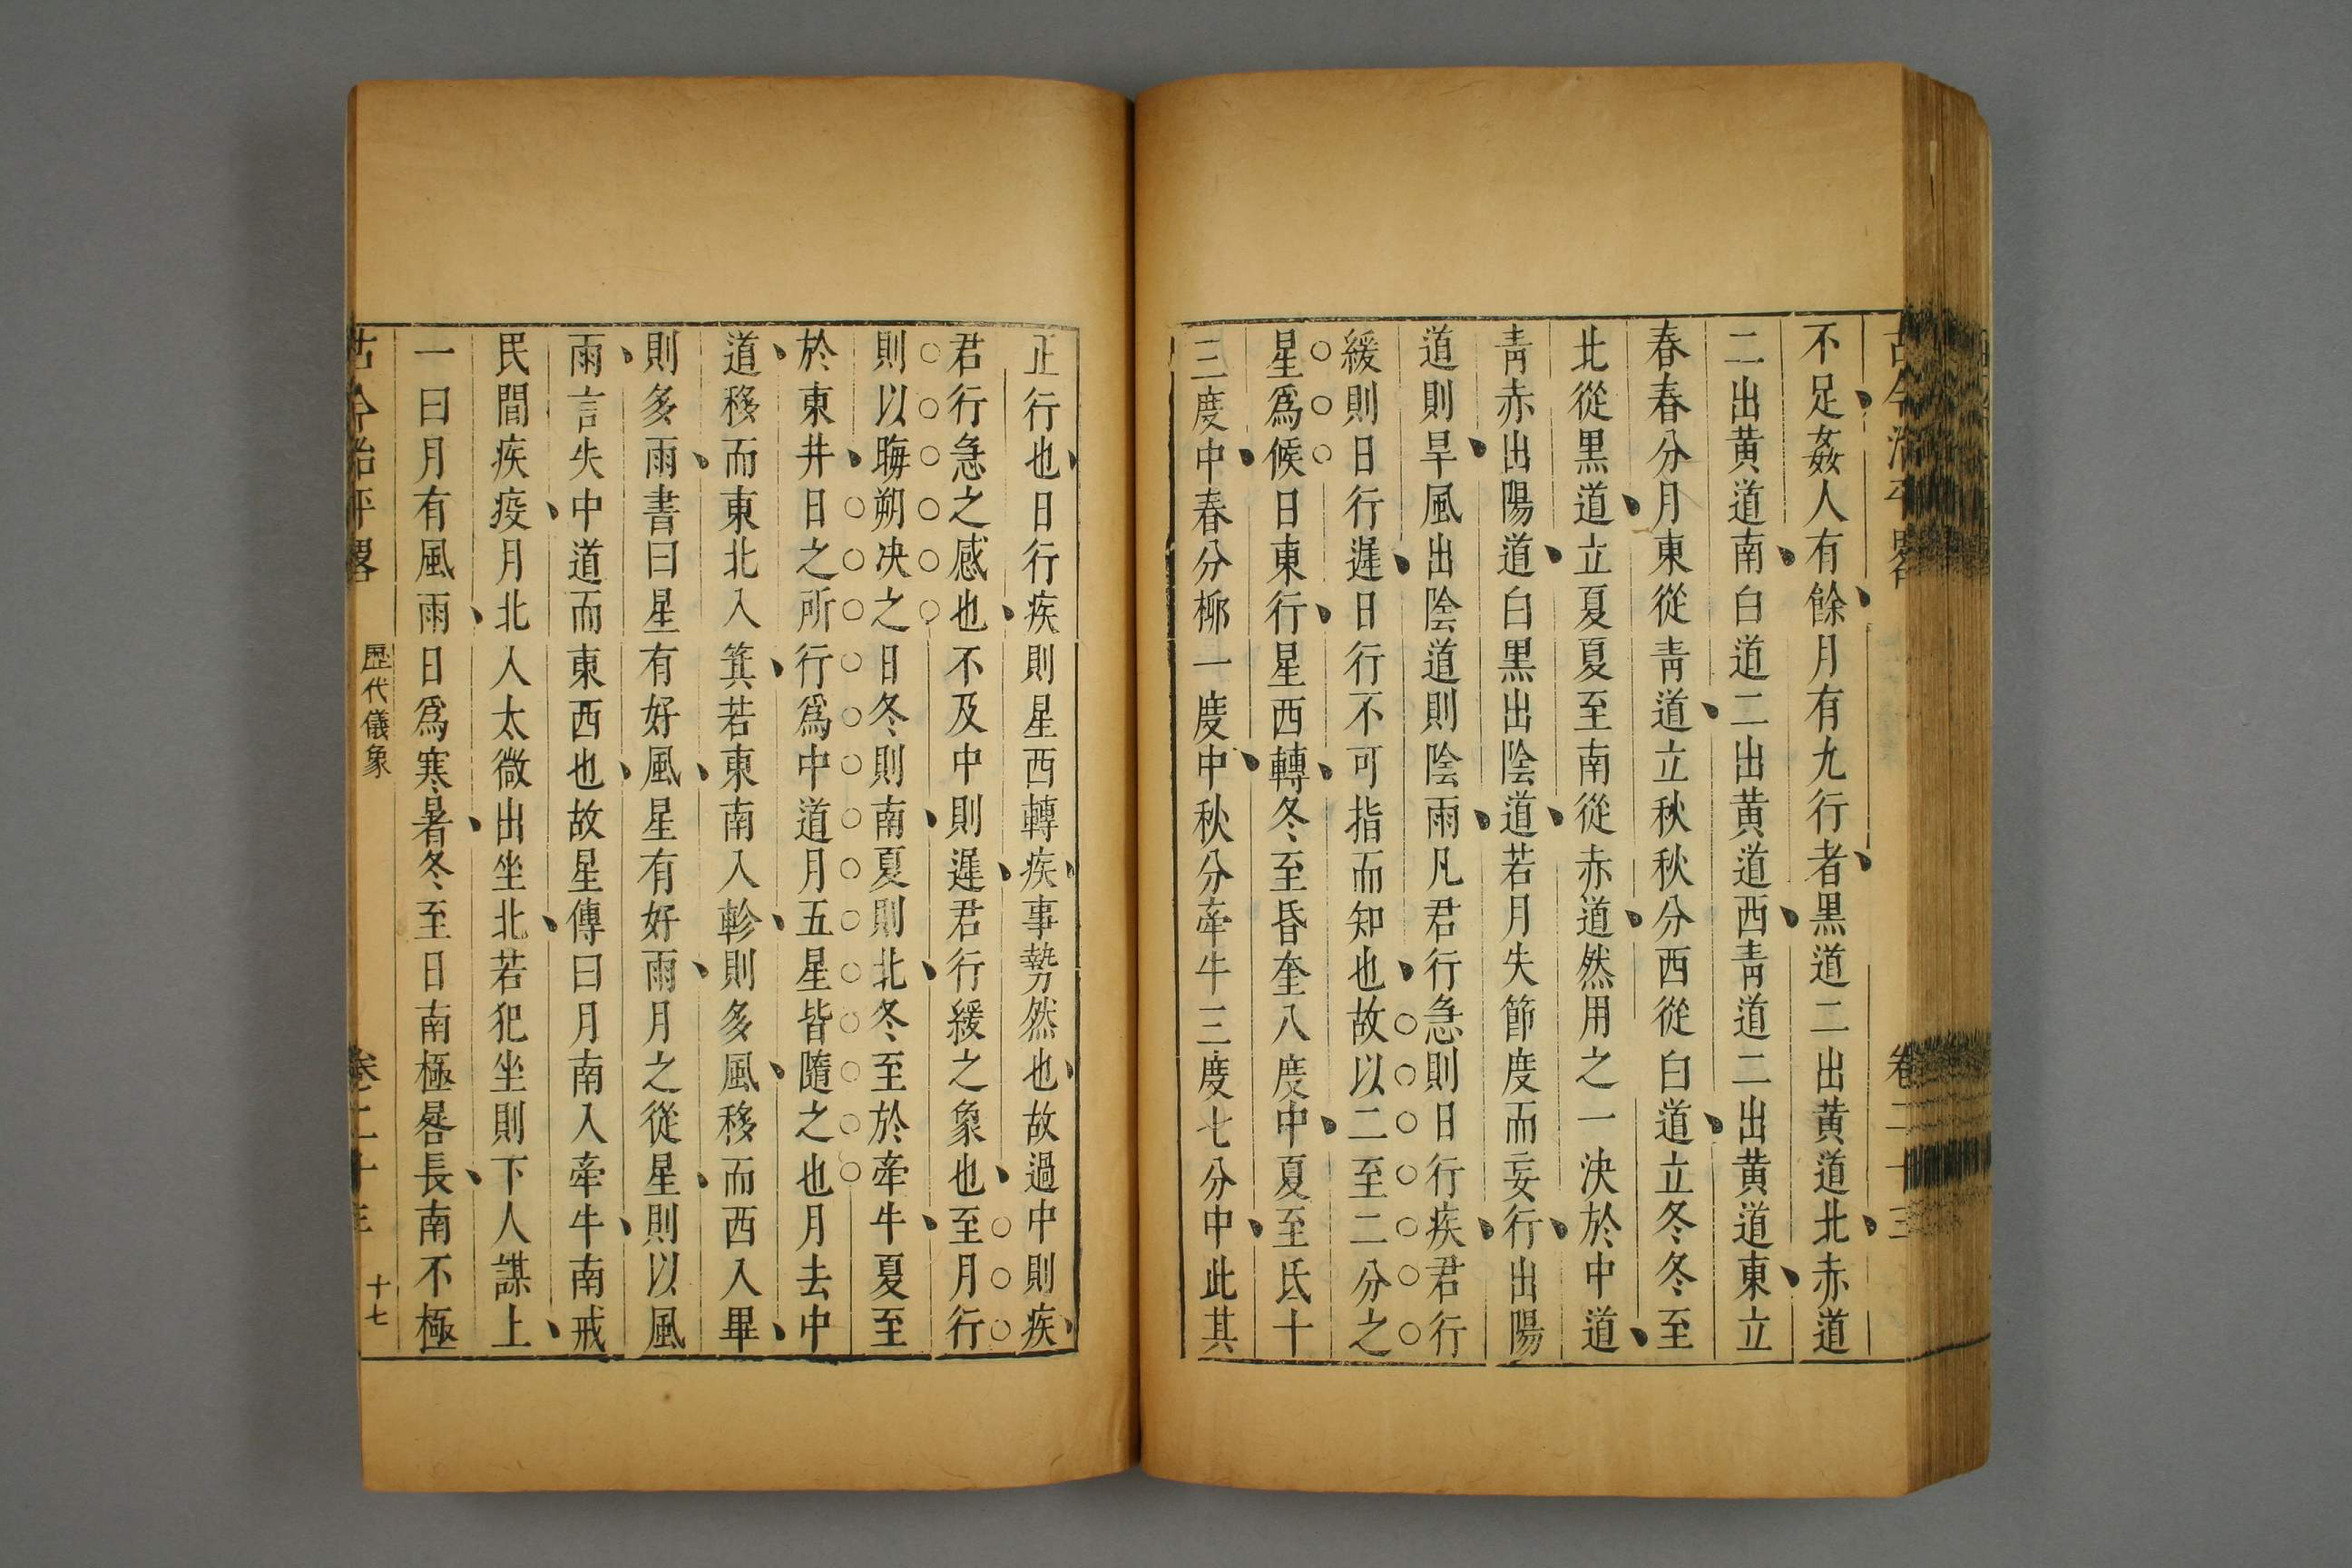 古今治平畧 卷二十三
不足姦人有餘月有九行者黒道二出黄道北赤道
二出黄道南白道二出黄道西靑道二出黄道東立
春春分月東從靑道立秋秋分西從白道立冬冬至
北從黒道立夏夏至南從赤道然用之一決於中道
靑赤出陽道白黒出陰道若月失節度而妄行出陽
道則旱風出陰道則陰雨凡君行急則日行疾君行
緩則日行遲日行不可指而知也故以二至二分之
星爲候日東行星西轉冬至昏奎八度中夏至氐十
三度中春分柳一度中秋分牽牛三度七分中此其
正行也日行疾則星西轉疾事勢然也故過中則疾
君行急之感也不及中則遲君行緩之象也至月行
則以晦朔決之日冬則南夏則北冬至於牽牛夏至
於東井日之所行爲中道月五星皆隨之也月去中
道移而東北入箕若東南入軫則多風移而西入畢
則多雨書曰星有好風星有好雨月之從星則以風
雨言失中道而東西也故星傳曰月南入牽牛南戒
民間疾疫月北入太微出坐北若犯坐則下人謀上
一曰月有風雨日爲寒暑冬至日南極晷長南不極
古今治平畧 歷代儀象 卷二十三 十七